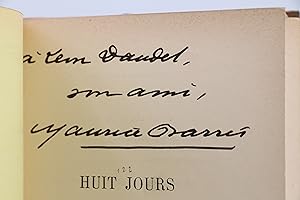 à Léon Daudet,
son ami,
Maurice Barrès
HUIT JOURS